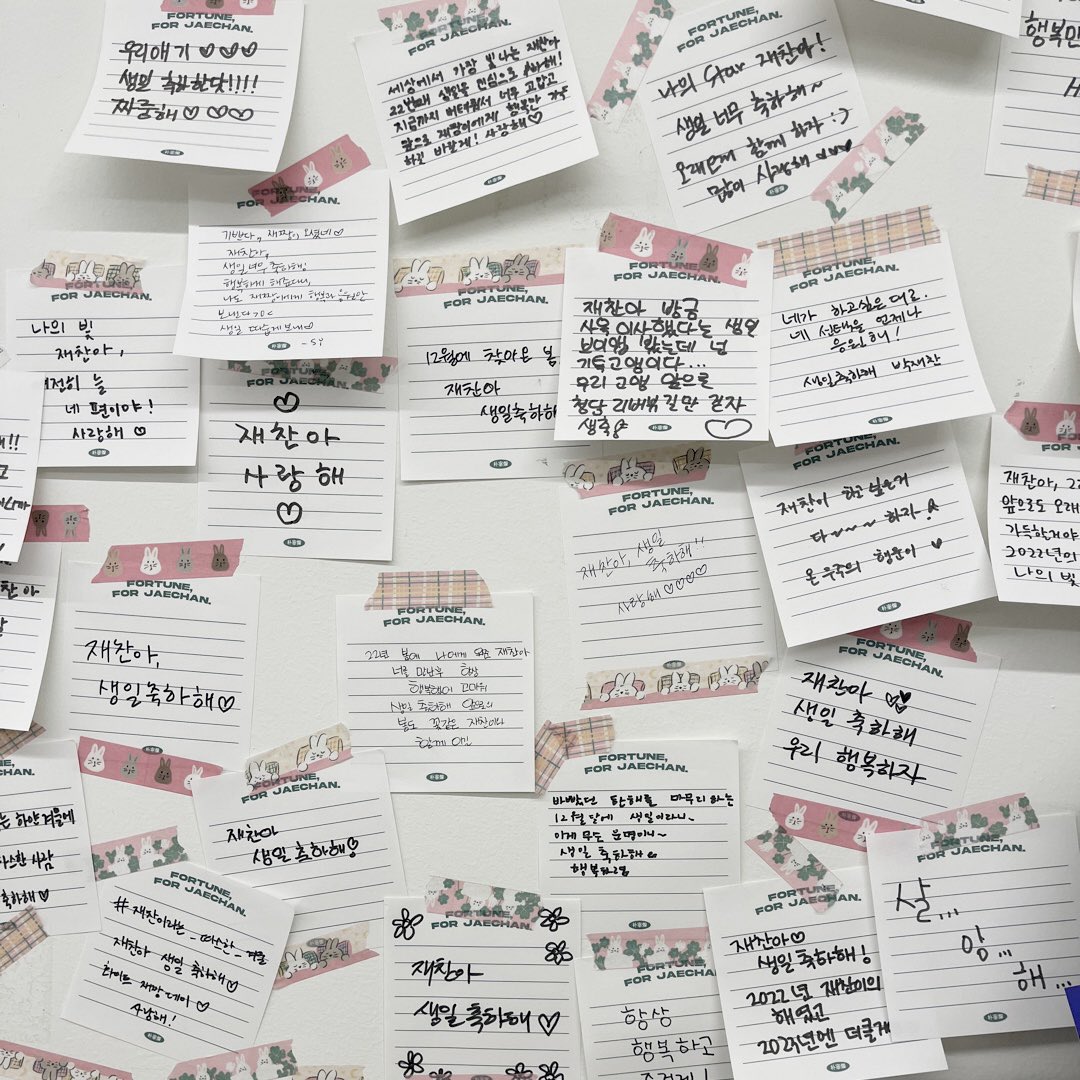 FORTUNE,
FOR JAECHAN.
우리애기 ♡♡♡
생일 축하한닷!!!!
찌쿵해 ♡♡♡
FORTUNE,
FOR JAECHAN.
세상에서 가장 빛나는 재찬아!
22번째 생일을 진심으로 축하해!
지금까지 버텨줘서 너무 고맙고
앞으로 재짱이에게 행복만 가득
하길 바랄게! 사랑해♡
FORTUNE,
FOR JAECHAN.
나의 Star 재찬아!
생일 너무 축하해~
오래오래 함께 하자 :)
많이 사랑해 ♡♡♡
행복만
FORTUNE,
FOR JAECHAN.
재찬아,
생일 너무 축하해!
행복하게 해줄테니,
생일 따숩게 보내♡
-SY
FORTUNE,
FOR JAECHAN.
나의 빛
재찬아,
여전히 늘
네 편이야!
사랑해 ♡
♡
재찬아
사랑해
♡
FORTUNE,
FOR JAECHAN.
12월에 찾아온 봄
재찬아
생일축하해
FORTUNE,
FOR JAECHAN.
재찬아 방금
사옥이사했다는 생일
브이앱 봤는데 넌
기특고앵이다...
우리 고앵 앞으로
청담 리버뷰길만 걷자
생축 ♡
FORTUNE,
FOR JAECHAN.
네가 하고싶은 대로.
네 선택을 언제나
응원해!
생일축하해 박재찬
FOR JAECHAN.
재찬이 하고 싶은거
다~~~ 하자!
온 우주의 행운이 ♥
재찬아, 22
앞으로도 오래
가득할거야
2022년의
나의 빛
FORTUNE,
FOR JAECHAN.
재찬아, 생일
축하해!!
사랑해♡♡♡♡
FORTUNE,
FOR JAECHAN.
재찬아,
생일축하해♡
FORTUNE,
FOR JAECHAN.
22년 봄에 나에게 와준 재찬아
너를 만난후 항상
행복했어 고마워
생일 축하해 앞으로의
봄도 꽃같은 재찬이와
함께 이길
재찬아 ♥♥
생일 축하해
우리 행복하자
FORTUNE,
FOR JAECHAN.
재찬아
생일 축하해♡
FORTUNE,
FOR JAECHAN.
바빴던 한해를 마무리하는
12월달에 생일이라니~
이게 무슨 운명이니~
생일 축하해
행복하렴
는 하얀겨울에
따스한 사람
축하해♡
FORTUNE,
FOR JAECHAN.
#재찬이라는_따스한_겨울
재찬아 생일 축하해♡
화이트 재짱데이 ♡
사랑해!
FORTUNE,
FOR JAECHAN.
재찬아
생일 축하해♡
FORTUNE,
FOR JAECHAN.
항상
행복하고
FORTUNE,
FOR JAECHAN.
재찬아♡
생일 축하해!
2022년 재찬이의
해였고
2023년엔 더크게
FORTUNE,
FOR JAECHAN.
살...
앙...
해...